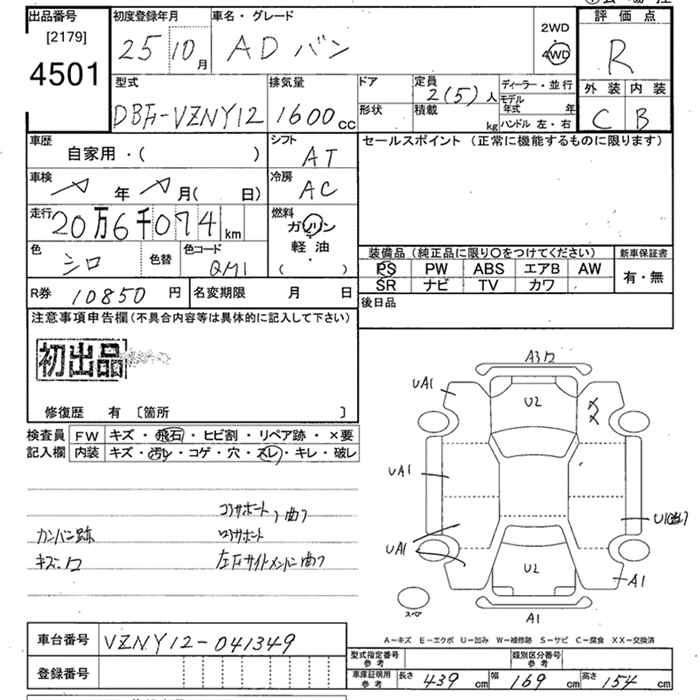 出品番号 初度登録年月 車名・グレード 2WD 評価点
[2179] 25 10月 ADバン 4WD R
4501 外装 内装
型式 排気量 ドア 定員 2(5)人 ディーラー・並行 C B
DBF-VZNY12 1600cc 形状 積載 kg モデル年式 年
ハンドル 左・右
車歴 シフト セールスポイント (正常に機能するものに限ります)
自家用・( ) AT
車検 年 月( 日) 冷房
AC
走行 燃料
20万6千074km ガソリン
色 シロ 色替 色コード QM1 軽油
( )
装備品 (純正品に限り○をつけてください) 新車保証書
PS PW ABS エアB AW 有・無
SR ナビ TV カワ
R券 10850円 名変期限 月 日 後日品
注意事項申告欄(不具合内容等は具体的に記入して下さい)
初出品
修復歴 有 〔箇所 〕
検査員 FW キズ・飛石・ヒビ割・リペア跡・×要
記入欄 内装 キズ・汚レ・コゲ・穴・スレ・キレ・破レ
コアサポート 曲ガ
カンバン跡
キズ・
左右サイドメンバー曲ガ
A3
UA1
U2
UA1
U1
UA1
U2
A1
スペア
A1
A-キズ E-エクボ U-凹み W-補修跡 S-サビ C-腐食 XX-交換済
車台番号 VZNY12-041349
型式指定番号 参考 類別区分番号 参考
登録番号
車庫証明用 参考 長さ 439cm 幅 169cm 高さ 154cm